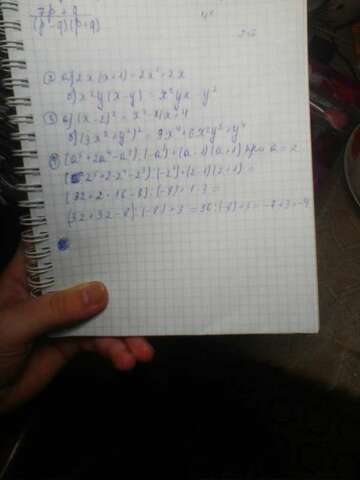 7p + q
(p - q)(p + q)
2) а) 2x(x+1) = 2x² + 2x
б) x²y(x-y) = x²yx - y²
3) а) (x-2)² = x² - 4x + 4
б) (3x² + y²)² = 9x⁴ + 6x²y² + y⁴
(a⁵ + 2a⁴ - a³) : (-a³) + (a-1)(a+1) при a = 2
(2⁵ + 2·2⁴ - 2³) : (-2³) + (2-1)(2+1) =
(32 + 2·16 - 8) : (-8) + 1·3 =
(32 + 32 - 8) : (-8) + 3 = 56 : (-8) + 3 = -7 + 3 = -4